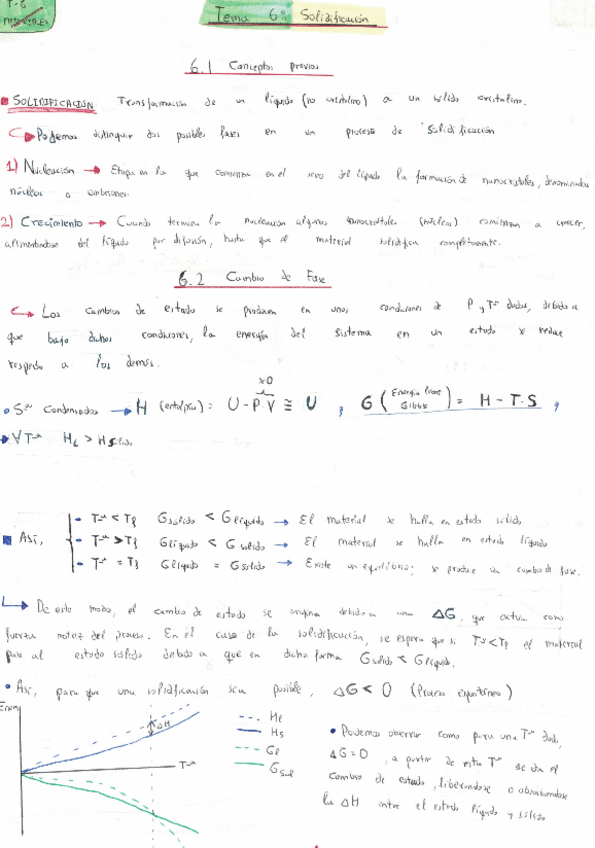 T-6
MATERIALES
Tema 6: Solidificación
6.1 Conceptos previos
SOLIDIFICACIÓN Transformación de un líquido (no cristalino) a un sólido cristalino.
Podemos distinguir dos posibles fases en un proceso de solidificación
1) Nucleación → Etapa en la que comienza en el seno del líquido la formación de nanocristales, denominados
núcleos o embriones.
2) Crecimiento → Cuando termina la nucleación algunos nanocristales (núcleos) comienzan a crecer,
alimentándose del líquido por difusión, hasta que el material solidifica completamente.
6.2 Cambio de Fase
Los cambios de estado se producen en unas condiciones de P y Tª dadas, debido a
que bajo dichas condiciones, la energía del sistema en un estado se reduce
respecto a los demás.
≈0
• Sᵃˢ Condensados → H (entalpía) = U - P·V ≅ U , G (Energía libre Gibbs) = H - T·S ,
∀ Tª H_L > H sólido
Así,
• Tª < Tf G sólido < G líquido → El material se halla en estado sólido
• Tª > Tf G líquido < G sólido → El material se halla en estado líquido
• Tª = Tf G líquido = G sólido → Existe un equilibrio; se produce un cambio de fase.
De este modo, el cambio de estado se origina debido a una ΔG, que actúa como
fuerza motriz del proceso. En el caso de la solidificación, se espera que si Tª < Tf el material
pase al estado sólido debido a que en dicha forma G sólido < G líquido.
• Así, para que una solidificación sea posible, ΔG < 0 (Proceso espontáneo)
Energ
ΔH
Tª
Hl
Hs
Gl
G sol
• Podemos observar como para una Tª dada,
ΔG = 0, a partir de esta Tª se da el
cambio de estado, liberándose o absorbiéndose
la ΔH entre el estado líquido y sólido